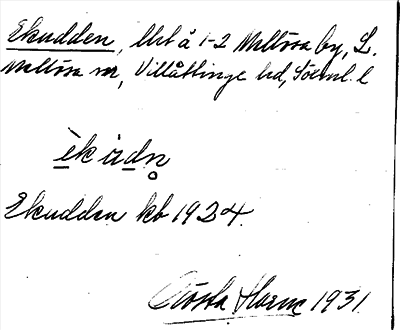 Ekudden, lht å 1-2 Mellösa by, L.
Mellösa sn, Villåttinge hd, Söderml. l
èkùdn̥
Ekudden kb 1924.
Gösta Harne 1931.